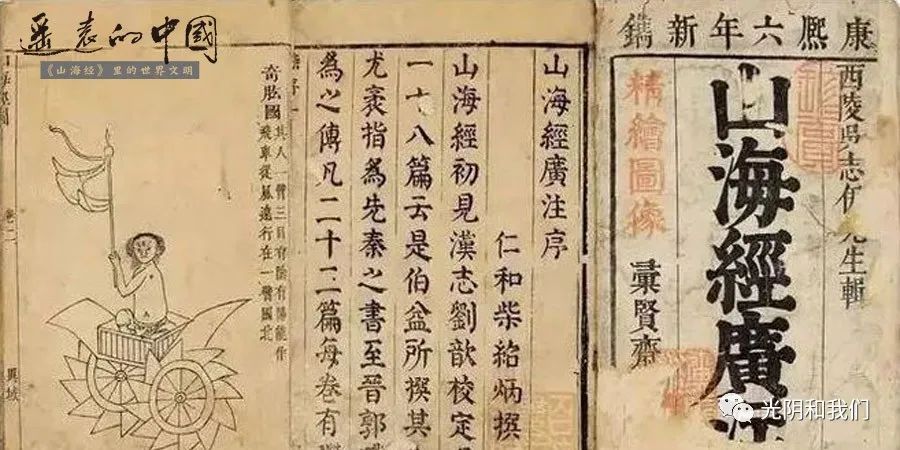 遥远的中國
《山海经》里的世界文明
康熙六年新鐫
西陵吳志伊先生輯
山海經廣
精繪圖像
彙賢齋
山海經廣注序
仁和柴紹炳撰
山海經初見漢志劉歆校定
一十八篇云是伯益所撰其
尤袤指為先秦之書至晉郭
為之傳凡二十三篇每卷有
奇肱國
其人一臂三目有陰有陽能作
飛車從風遠行在一臂國北
卷二
異域
光阴和我们